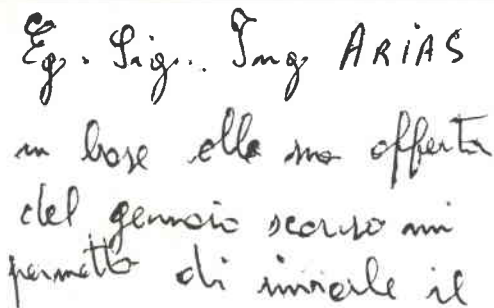 Eg. Sig.. Ing ARIAS
in base alla sua offerta
del gennaio scorso mi
permetto di inviarle il